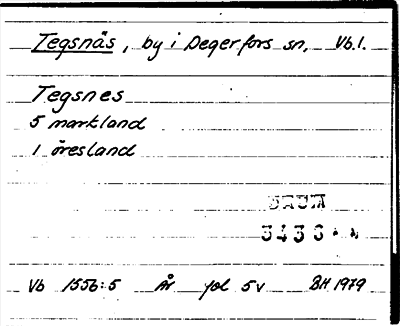 Tegsnäs, by i Degerfors sn. Vb.l.
Tegsnes
5 markland
1 öresland
3436
Vb 1556:5 År fol 5v BH 1979